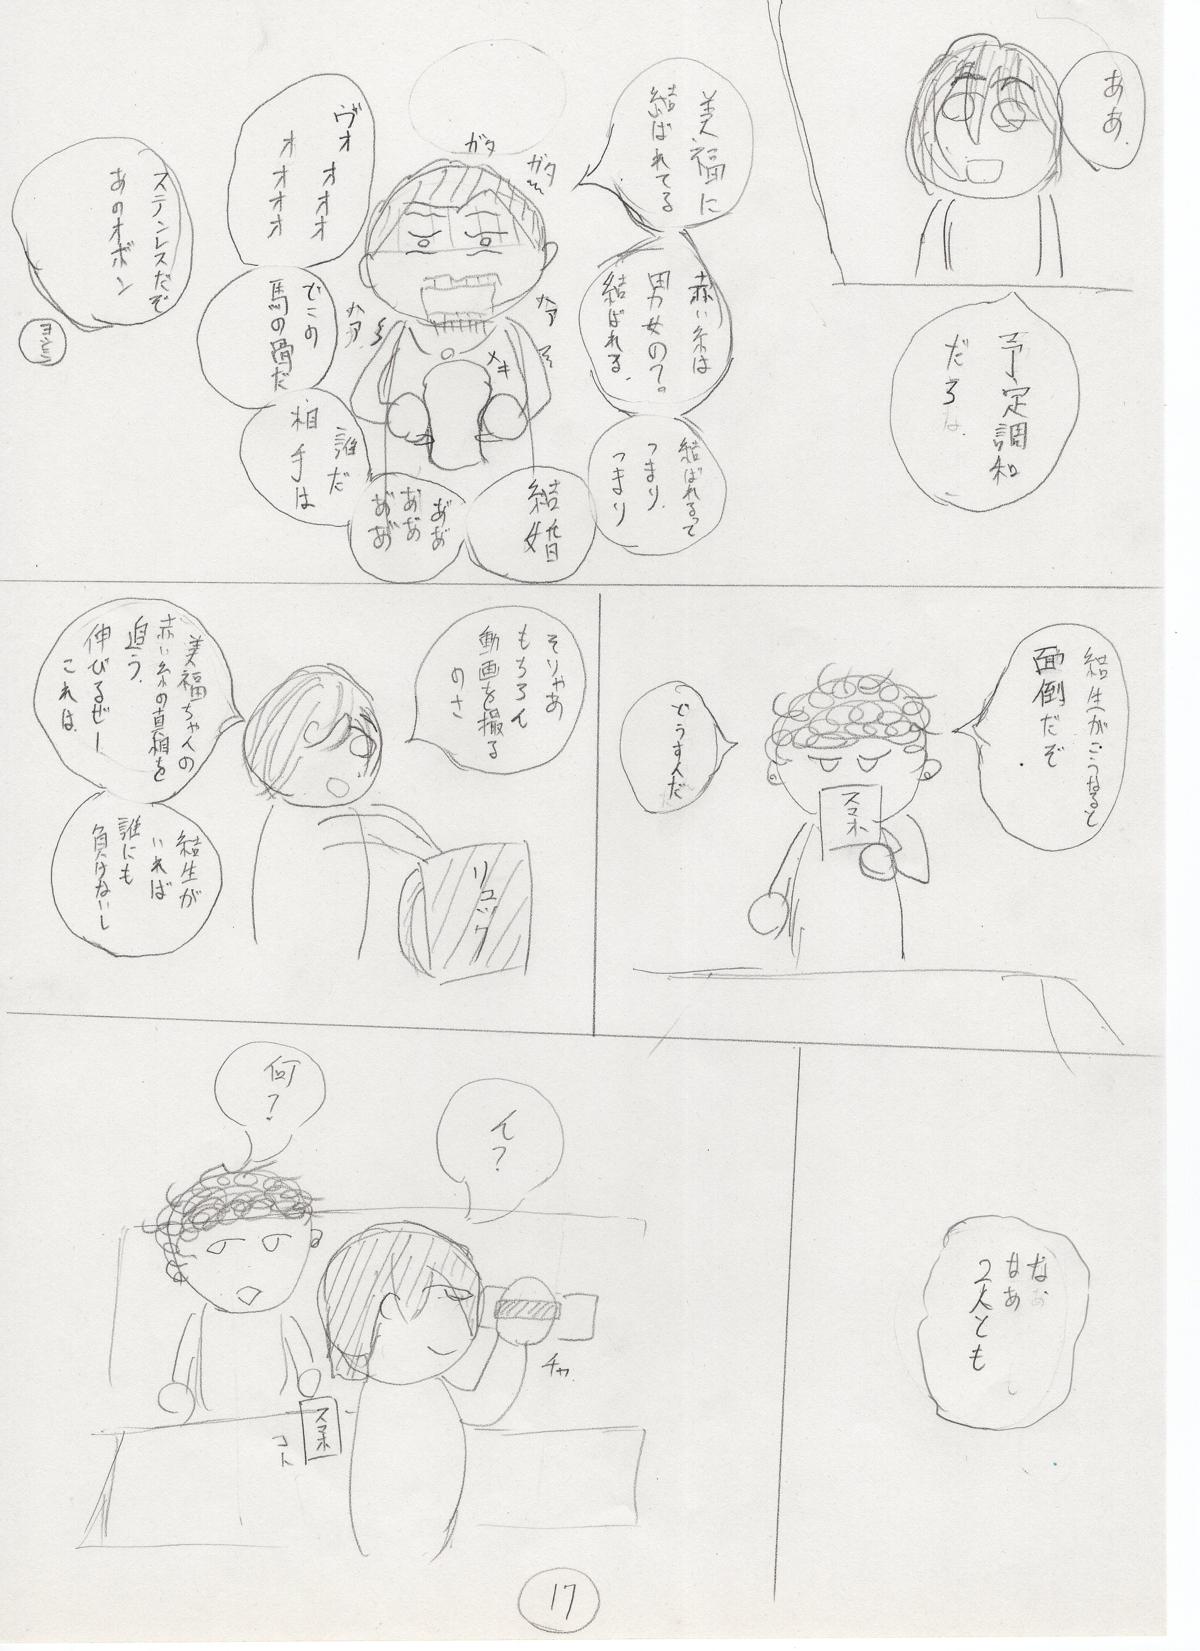 ああ.
予定調和
だろ
な.
美福に
結ばれてる
赤い糸は
男女ので。
結ばれる.
結ばれるって
つまり.
つまり
結婚
あ゙あ゙
あ゙あ゙
あ゙あ゙
誰だ
相手は
どこの
馬の骨だ
ヴォオオオ
オオオオ
ガタ
ガタ
ハア
メキ
ハア
ステンレスだぞ
あのオボン
結生がこうなると
面倒だぞ.
どうすんだ
スマホ
そりゃあ
もちろん
動画を撮る
のさ
美福ちゃんの
赤い糸の真相を
追う.
伸びるぜー
これは.
結生が
いれば
誰にも
負けないし
リュック
なぁ
なあ
2人とも
ん?
何?
チャ
スマホ
コト
17